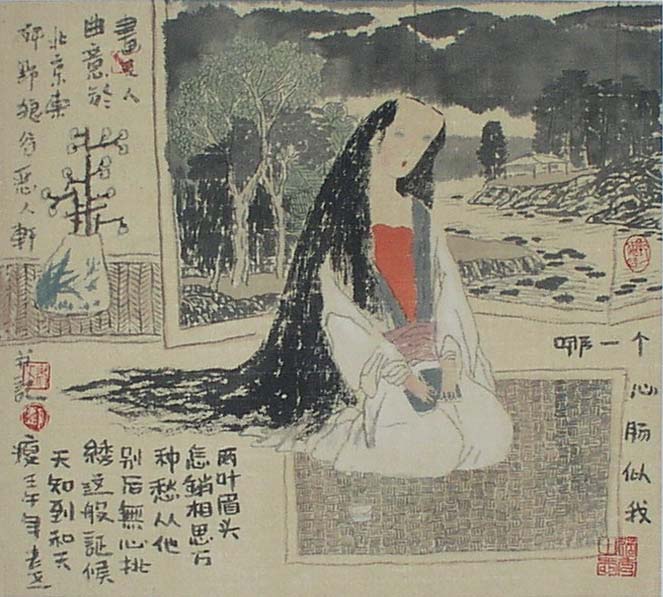 哪一个
心肠似我
两叶眉头
怎銷相思万
种愁从他
别后無心挑
綉这般証候
天知到和天
瘦壬午年老
畫人
曲意於
北京東
郊野狼谷惡人軒
并記